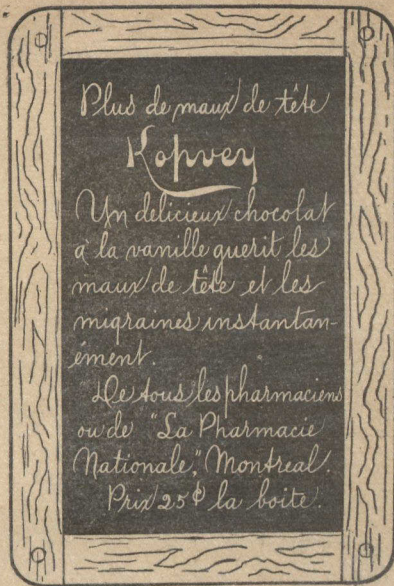 Plus de maux de tête
Kopvey
Un delicieux chocolat
a la vanille guerit les
maux de tête et les
migraines instantan-
ément.
De tous les pharmaciens
ou de "La Pharmacie
Nationale," Montreal.
Prix 25¢ la boite.